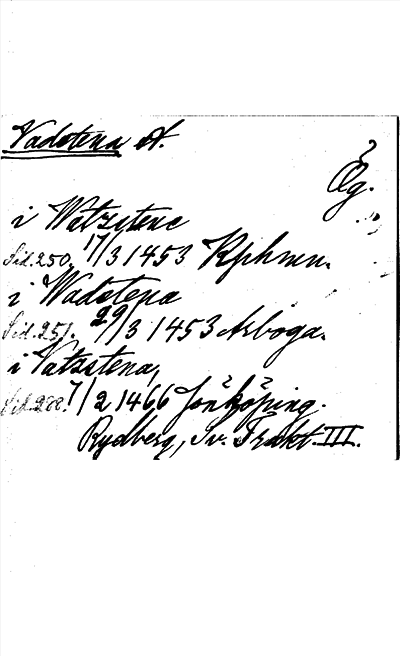 Vadstena st.
Ög.
i Watzstene
Sid. 250. 17/3 1453 Kphmn.
i Wadstena
Sid. 251. 29/3 1453 Arboga.
i Vatzstena,
Sid. 288. 7/2 1466 Jönköping.
Rydberg, Sv. Trakt. III.